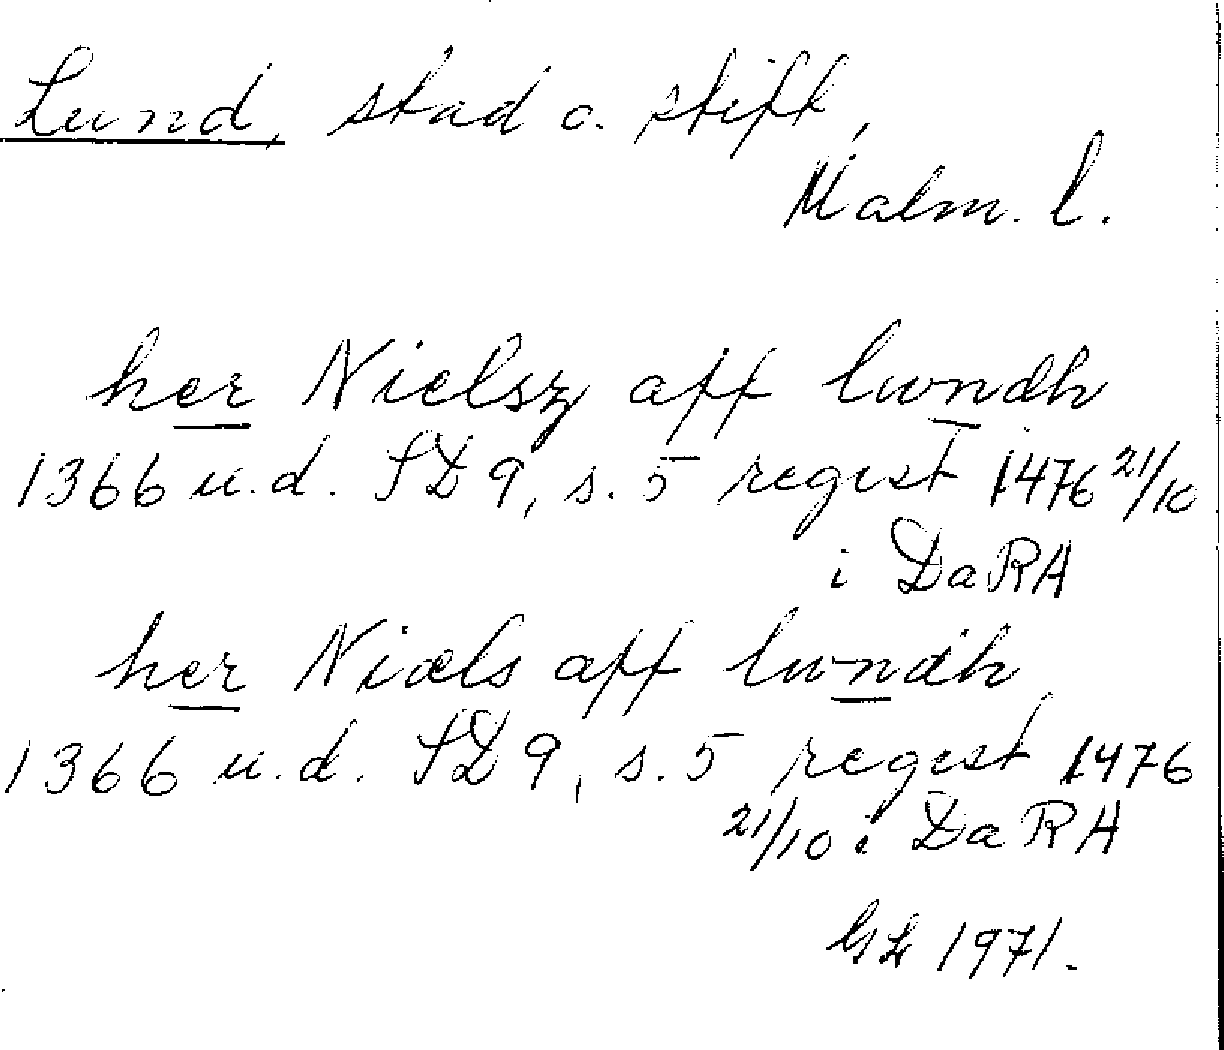 Lund, stad o. stift,
Malm. l.
her Nielsz aff lwndh
1366 u.d. SD 9, s. 5 regest 1476 21/10
i DaRA
her Niæls aff lwndh
1366 u.d. SD 9, s. 5 regest 1476
21/10 i DaRA
1971.